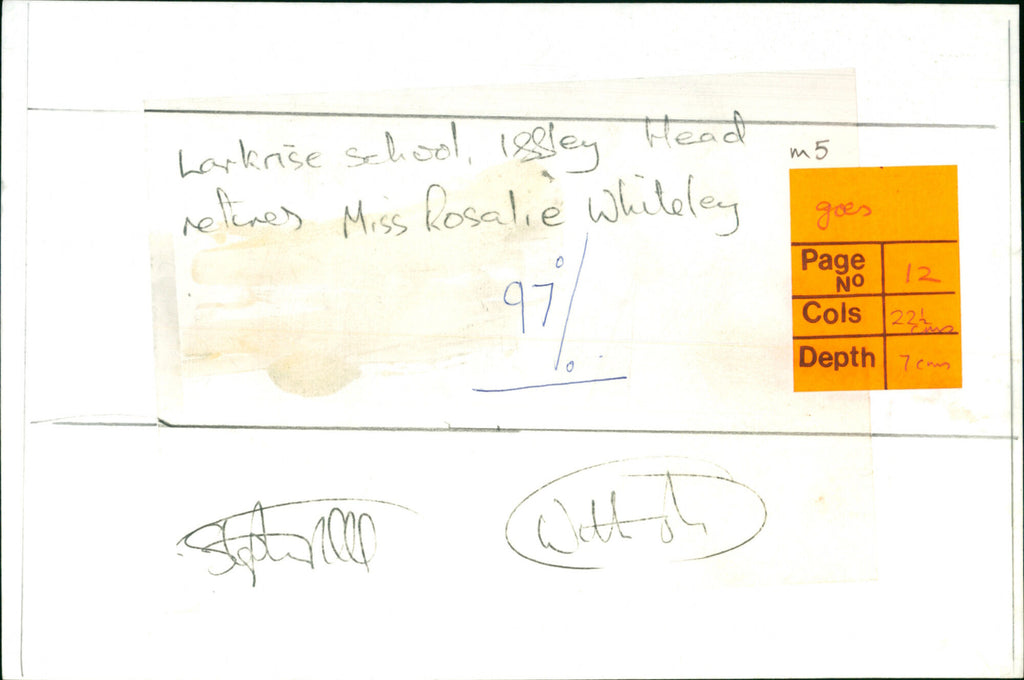 Larkrise school, Head
retires Miss Rosalie Whiteley
97%
m5
goes
Page No 12
Cols 22½ cms
Depth 7 cms